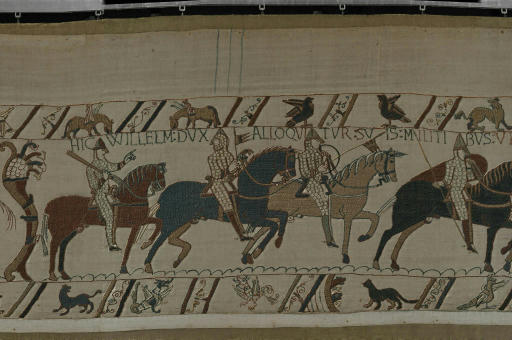 HIC WILLELM: DUX ALLOQUITUR SUIS: MILITIBUS: UT